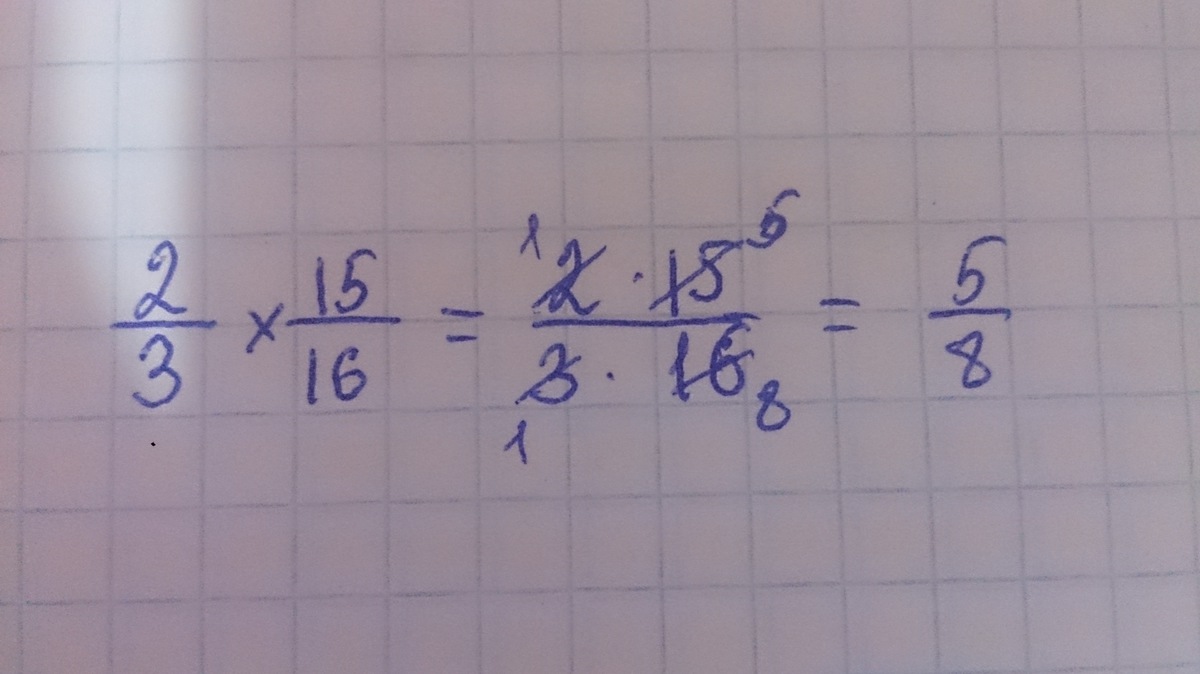 2/3 × 15/16 = ¹2 · 15⁵ / ₁3 · 16₈ = 5/8